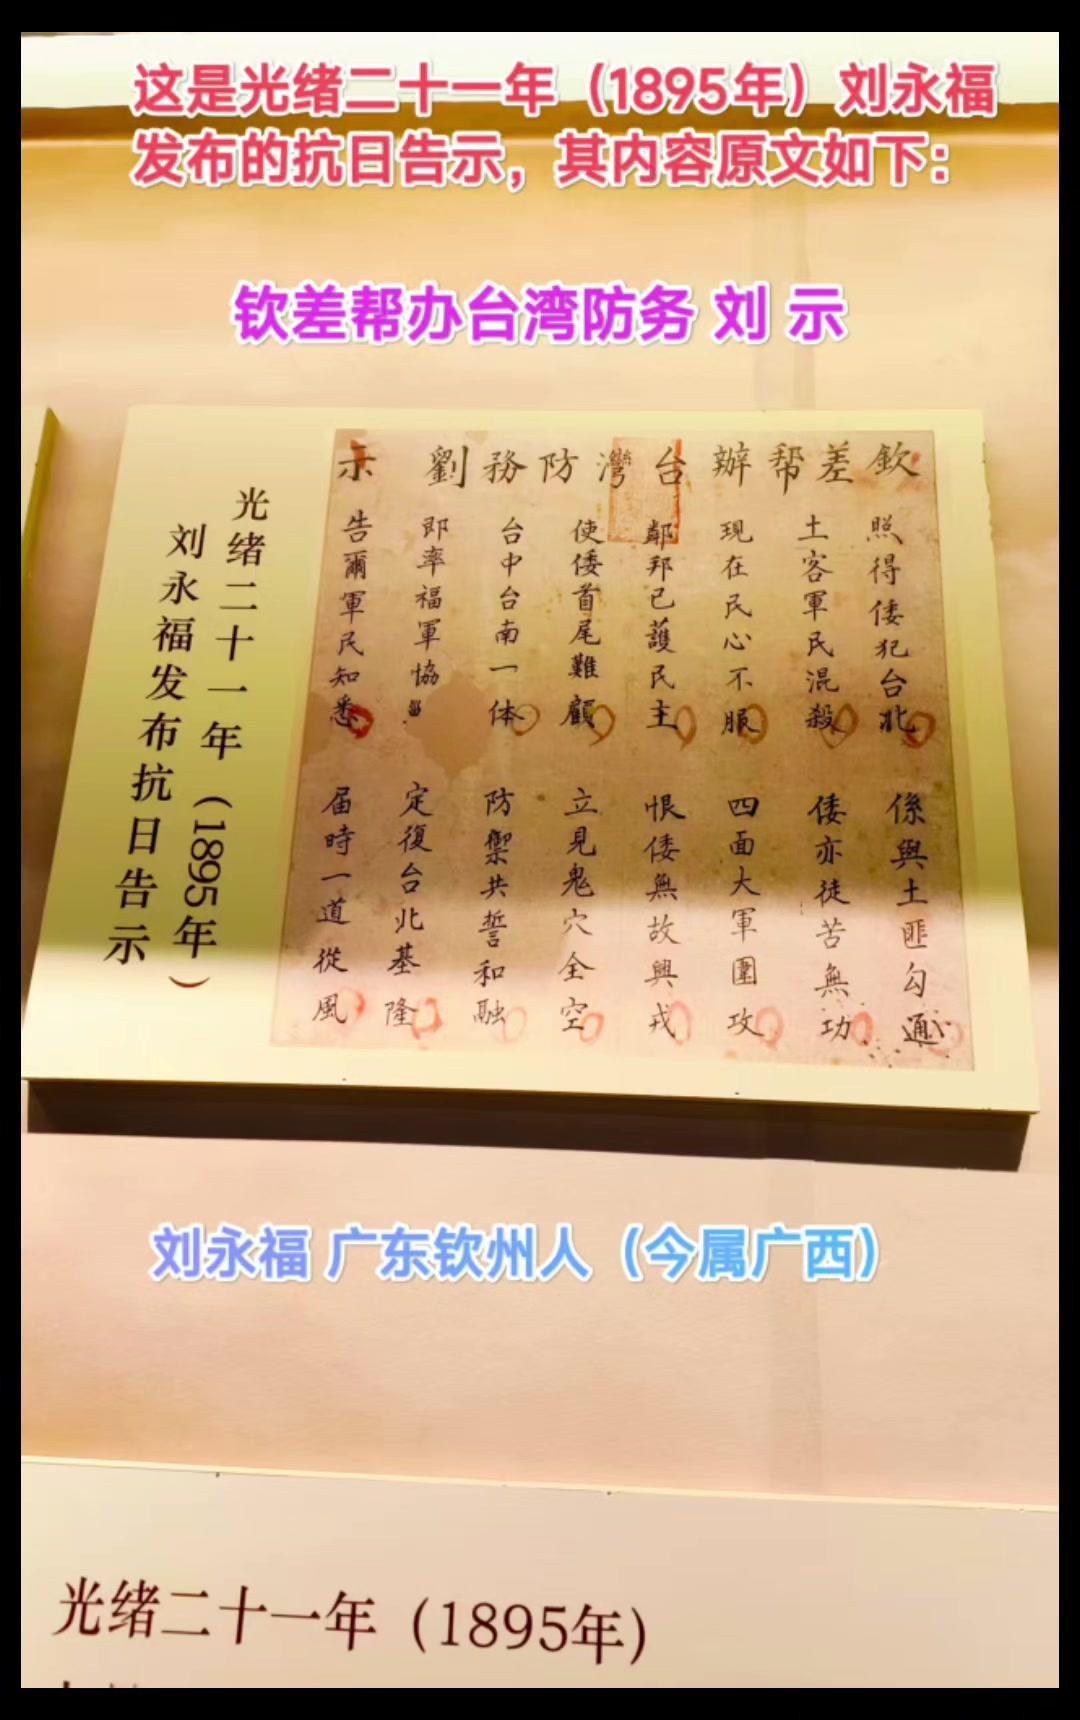 这是光绪二十一年（1895年）刘永福
发布的抗日告示，其内容原文如下：
钦差帮办台湾防务 刘 示
欽差帮辦台灣防務 劉 示
照得倭犯台北 係與土匪勾通
土客軍民混殺 倭亦徒苦無功
現在民心不服 四面大軍圍攻
鄰邦已護民主 恨倭無故興戎
使倭首尾難顧 立見鬼穴全空
台中台南一体 防禦共誓和融
即率福軍協 定復台北基隆
告爾軍民知悉 届時一道從風
光绪二十一年（1895年）
刘永福发布抗日告示
刘永福 广东钦州人（今属广西）
光绪二十一年（1895年）